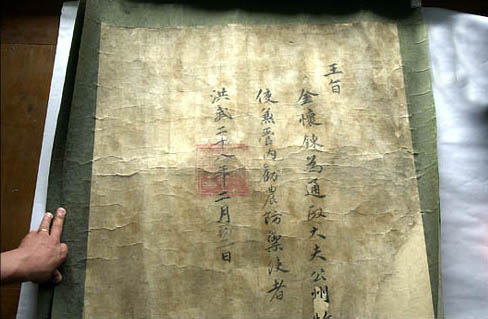 王旨
金懷鍊為通政大夫公州牧
使兼管內勸農防禦使者
洪武二十八年二月日